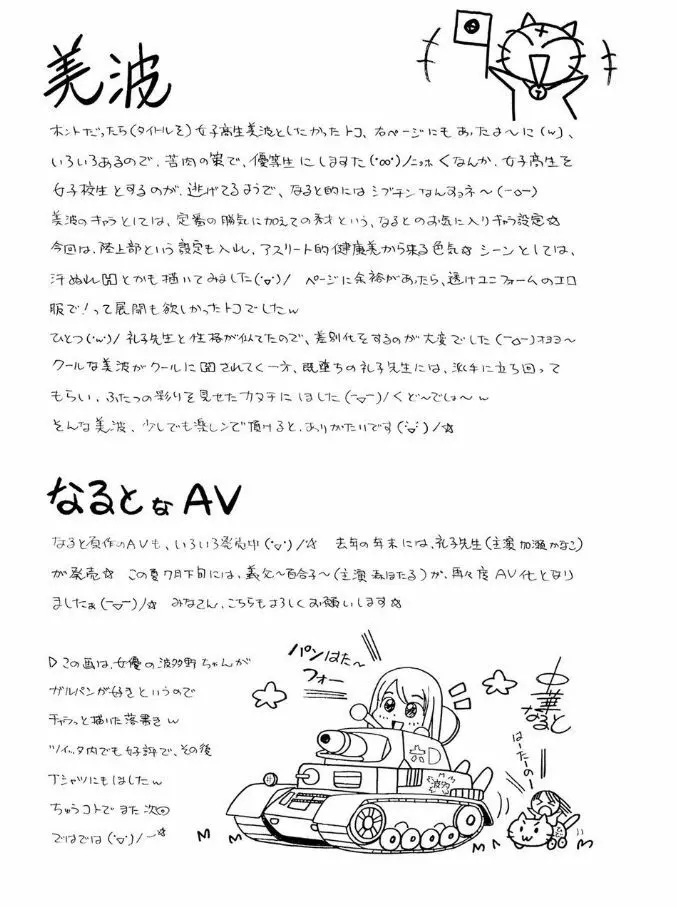 美波
ホントだったら(タイトルを)女子高生美波としたかったトコ、右ページにもあったよーに(w)、
いろいろあるので、苦肉の策で、優等生にしますた(°∞°)/ニッホ くなんか、女子高生を
女子校生とするのが、逃げてるようで、なると的にはシブチンなんすョネ〜(ー○ー)
美波のキャラとしては、定番の勝気に加えての秀才という、なるとのお気に入りキャラ設定☆
今回は、陸上部という設定も入れ、アスリート的健康美から来る色気☆ シーンとしては、
汗ぬれHとかも描いてみました(°▽°)/ ページに余裕があったら、透けユニフォームのエロ
服で!って展開も欲しかったトコでしたw
ひとつ(°w°)/ 礼子先生と性格が似てたので、差別化をするのが大変でした(ー○ー)オヨヨ〜
クールな美波がクールに調されてく一方、既堕ちの礼子先生には、派手に立ち回って
もらい、ふたつの彩りを見せたカタチにしました(ー▽ー)/くど〜でしょ〜w
そんな美波、少しでも楽しンで頂けると、ありがたいです(°▽°)/☆
なるとなAV
なると原作のAVも、いろいろ発売中(°▽°)/☆ 去年の年末には、礼子先生(主演 加瀬かなこ)
が発売☆ この夏7月下旬には、義父〜百合子〜(主演 森ほたる)が、再々度AV化となり
ましたぁ(ー▽ー)/☆ みなさん、こちらもよろしくお願いします☆
▷この画は、女優の波多野ちゃんが
ガルパンが好きというので
チャラっと描いた落書きw
ツイッタ内でも好評で、その後
Tシャツにもしましたw
ちゅうコトでまた次回
ではでは(°▽°)/~☆
パンはた〜
フォー
六D
波多
中華
なると
はーたーのー